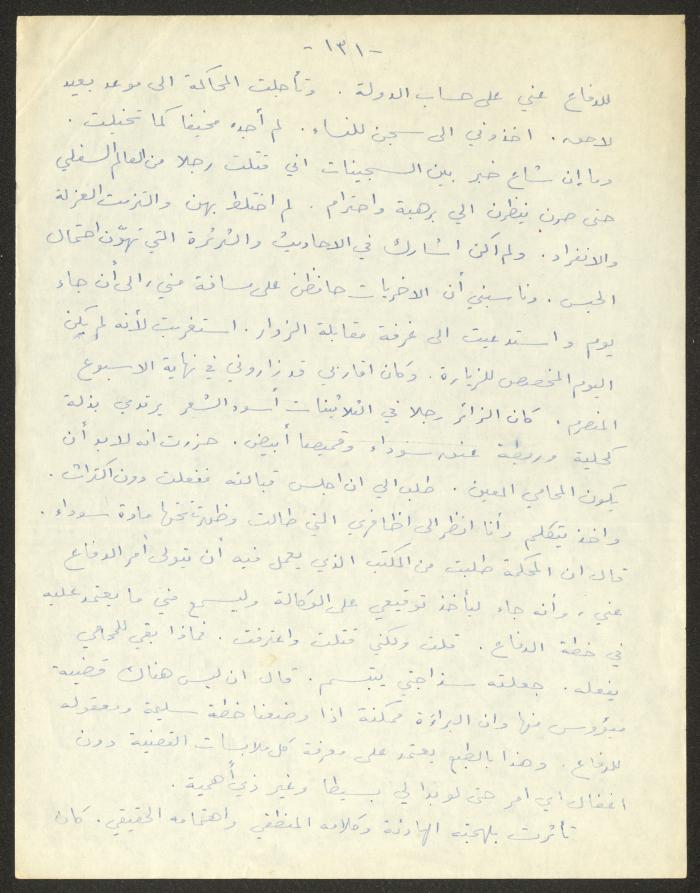 -١٣١-
للدفاع عني على حساب الدولة . وتأجلت المحاكمة الى موعد بعيد
لاحق . اخذوني الى سجن للنساء . لم أجده مخيفا كما تخيلت .
وما إن شاع خبر بين السجينات اني قتلت رجلا من العالم السفلي
حتى صرن ينظرن الي برهبة واحترام . لم اختلط بهن والتزمت العزلة
والانفراد . ولم اكن اشارك في الاحاديث والثرثرة التي تهوّن احتمال
الحبس . وناسبني أن الاخريات حافظن على مسافة مني ، الى أن جاء
يوم واستدعيت الى غرفة مقابلة الزوار . استغربت لأنه لم يكن
اليوم المخصص للزيارة . وكان اقاربي قد زاروني في نهاية الاسبوع
المنصرم . كان الزائر رجلا في الثلاثينات أسود الشعر يرتدي بذلة
كحلية وربطة عنق سوداء وقميصا أبيض . حزرت انه لابد أن
يكون المحامي المعين . طلب الي ان اجلس قبالته ففعلت دون اكتراث .
واخذ يتكلم وأنا انظر الى اظافري التي طالت وظهرت تحتها مادة سوداء .
قال ان المحكمة طلبت من المكتب الذي يعمل فيه أن يتولى أمر الدفاع
عني ، وأنه جاء ليأخذ توقيعي على الوكالة وليسمع مني ما يعتمد عليه
في خطة الدفاع . قلت ولكني قتلت واعترفت . فماذا بقي للمحامي
يفعله . جعلته سذاجتي يبتسم . قال ان ليس هناك قضية
ميؤوس منها وان البراءة ممكنة اذا وضعنا خطة سليمة ومعقولة
للدفاع . وهذا بالطبع يعتمد على معرفة كل ملابسات القضية دون
اغفال اي امر حتى لو بدا لي بسيطا وغير ذي أهمية .
تأثرت بلهجته الهادئة وكلامه المنطقي واهتمامه الحقيقي . كان